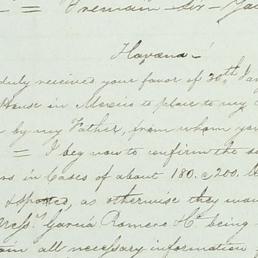 = I remain Sir
Havana
duly received your favor of 20th Jan
House in Mexico to place to my
by my Father, from whom you
= I beg now to confirm the
in Cases of about 180. @ 200. lb
spotted, as otherwise they
Messrs. Garcia Romero Ho being
all necessary information